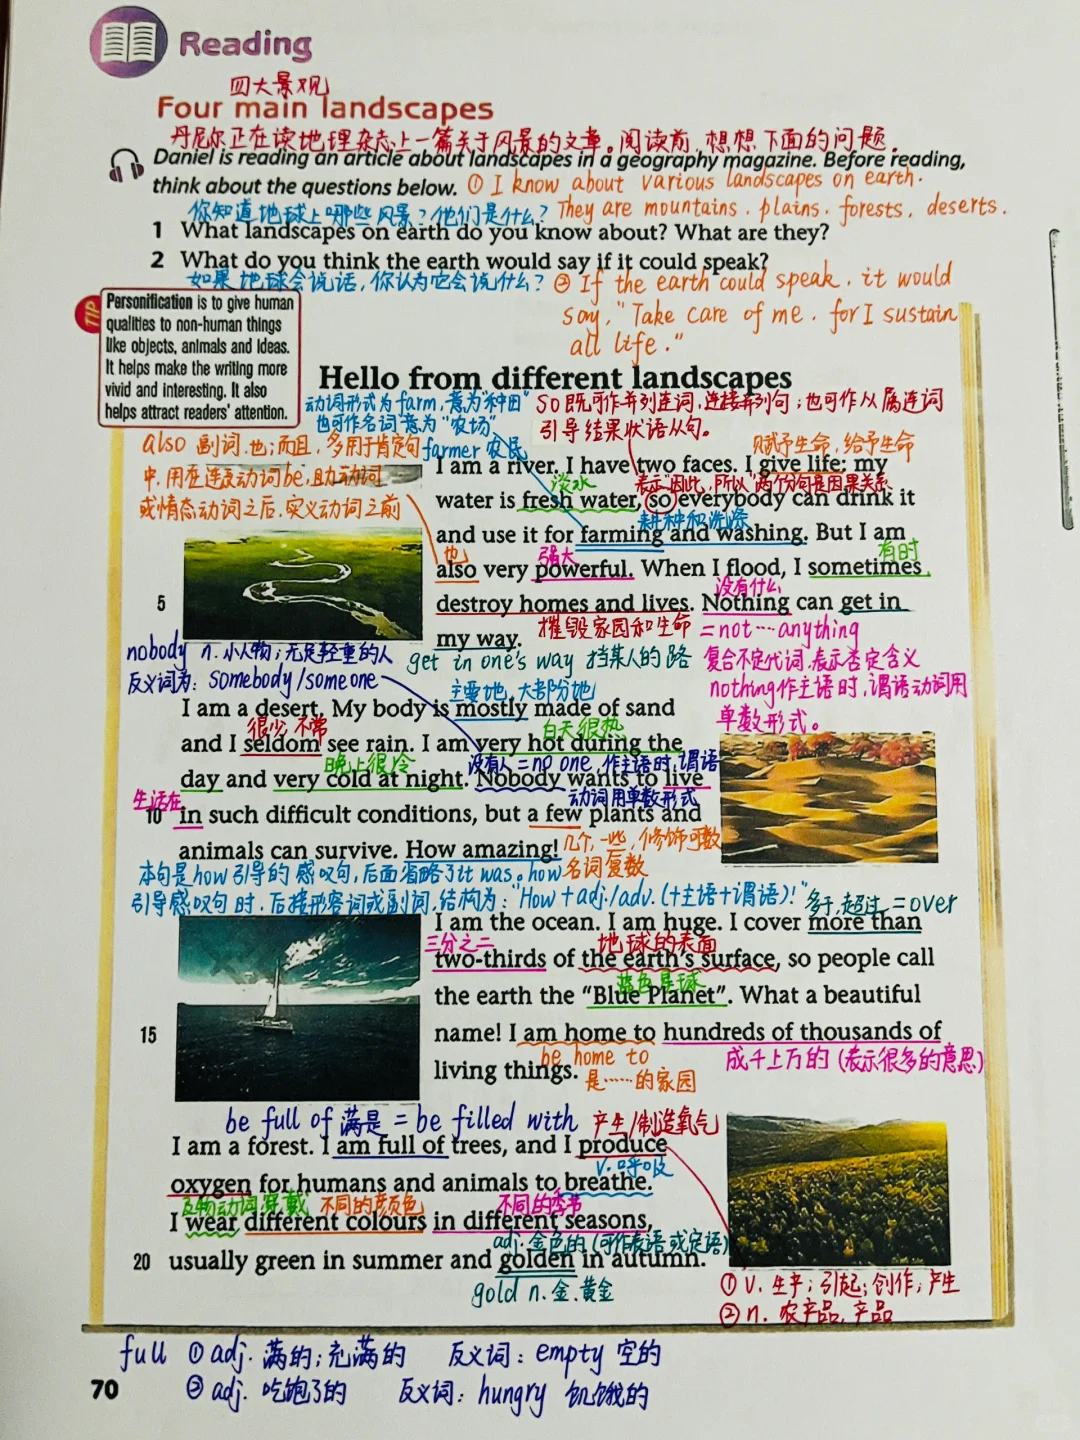 Reading
四大景观
Four main landscapes
丹尼尔正在读地理杂志上一篇关于风景的文章。阅读前,想想下面的问题.
Daniel is reading an article about landscapes in a geography magazine. Before reading,
think about the questions below.
① I know about various landscapes on earth.
They are mountains. plains. forests, deserts.
你知道地球上哪些风景?他们是什么?
1 What landscapes on earth do you know about? What are they?
2 What do you think the earth would say if it could speak?
如果地球会说话,你认为它会说什么?
② If the earth could speak. it would
say, "Take care of me. for I sustain
all life."
TIP
Personification is to give human
qualities to non-human things
like objects, animals and ideas.
It helps make the writing more
vivid and interesting. It also
helps attract readers' attention.
Hello from different landscapes
动词形式为farm,意为"种田"
也可作名词意为"农场"
farmer 农民
so既可作并列连词,连接并列句;也可作从属连词
引导结果状语从句。
also 副词.也;而且,多用于肯定句
中,用在连系动词be,助动词
或情态动词之后,实义动词之前
赋予生命,给予生命
I am a river. I have two faces. I give life: my
淡水
表示"因此,所以"两个分句是因果关系
water is fresh water, so everybody can drink it
耕种和洗涤
and use it for farming and washing. But I am
也
强大
有时
also very powerful. When I flood, I sometimes
没有什么
5 destroy homes and lives. Nothing can get in
摧毁家园和生命
my way.
get in one's way 挡某人的路
=not…anything
复合不定代词.表示否定含义
nothing作主语时,谓语动词用
单数形式。
nobody n.小人物;无足轻重的人
反义词为: somebody/someone
主要地.大部分地
I am a desert. My body is mostly made of sand
很少 不常
白天很热
and I seldom see rain. I am very hot during the
晚上很冷
没有人=no one,作主语时,谓语
动词用单数形式
day and very cold at night. Nobody wants to live
生活在
10 in such difficult conditions, but a few plants and
几个,一些,修饰可数
名词复数
animals can survive. How amazing!
本句是how引导的感叹句,后面省略了it was。how
引导感叹句时.后接形容词或副词.结构为:"How+adj./adv.(+主语+谓语)!"
多于,超过=over
I am the ocean. I am huge. I cover more than
三分之二
地球的表面
two-thirds of the earth's surface, so people call
蓝色星球
the earth the "Blue Planet". What a beautiful
15 name! I am home to hundreds of thousands of
be home to
是……的家园
成千上万的(表示很多的意思)
living things.
be full of 满是 = be filled with
产生/制造氧气
I am a forest. I am full of trees, and I produce
v.呼吸
oxygen for humans and animals to breathe.
不同的颜色
不同的季节
I wear different colours in different seasons,
adj.金色的(可作表语或定语)
20 usually green in summer and golden in autumn.
gold n.金.黄金
① v.生产;引起;创作;产生
② n.农产品,产品
full ① adj. 满的;充满的 反义词: empty 空的
② adj. 吃饱了的 反义词: hungry 饥饿的
70